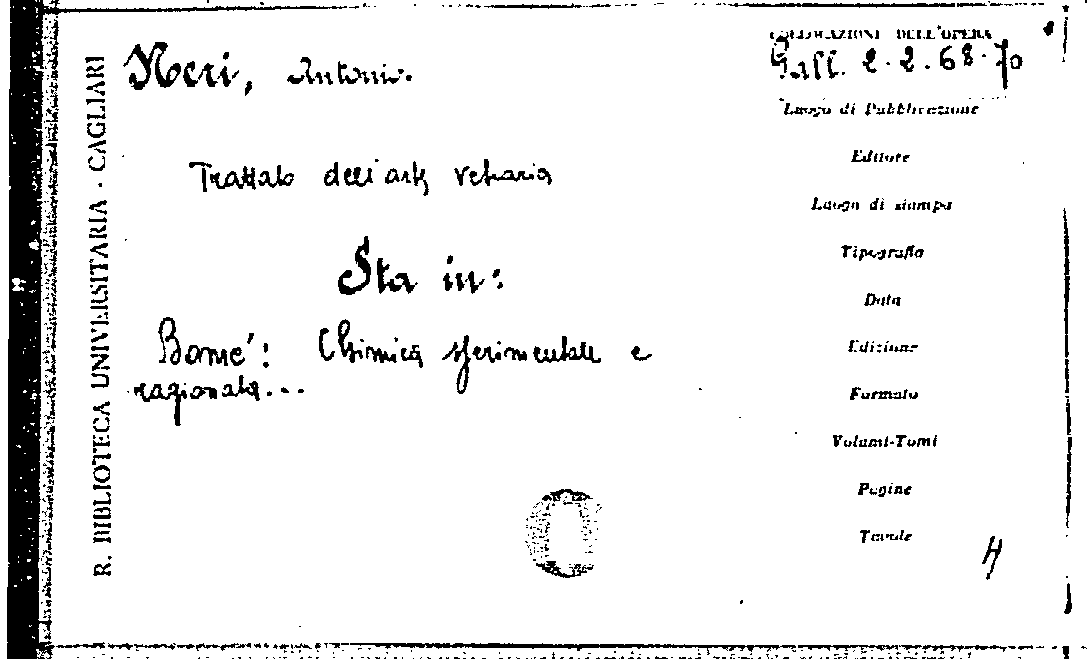 R. BIBLIOTECA UNIVERSITARIA - CAGLIARI
COLLOCAZIONI DELL'OPERA
Gall. 2.2.68-70
Neri, Antonio.
Trattato dell'arte vetraria
Sta in:
Bomé: Chimica sperimentale e
ragionata...
Luogo di Pubblicazione
Editore
Luogo di stampa
Tipografia
Data
Edizione
Formato
Volumi-Tomi
Pagine
Tavole